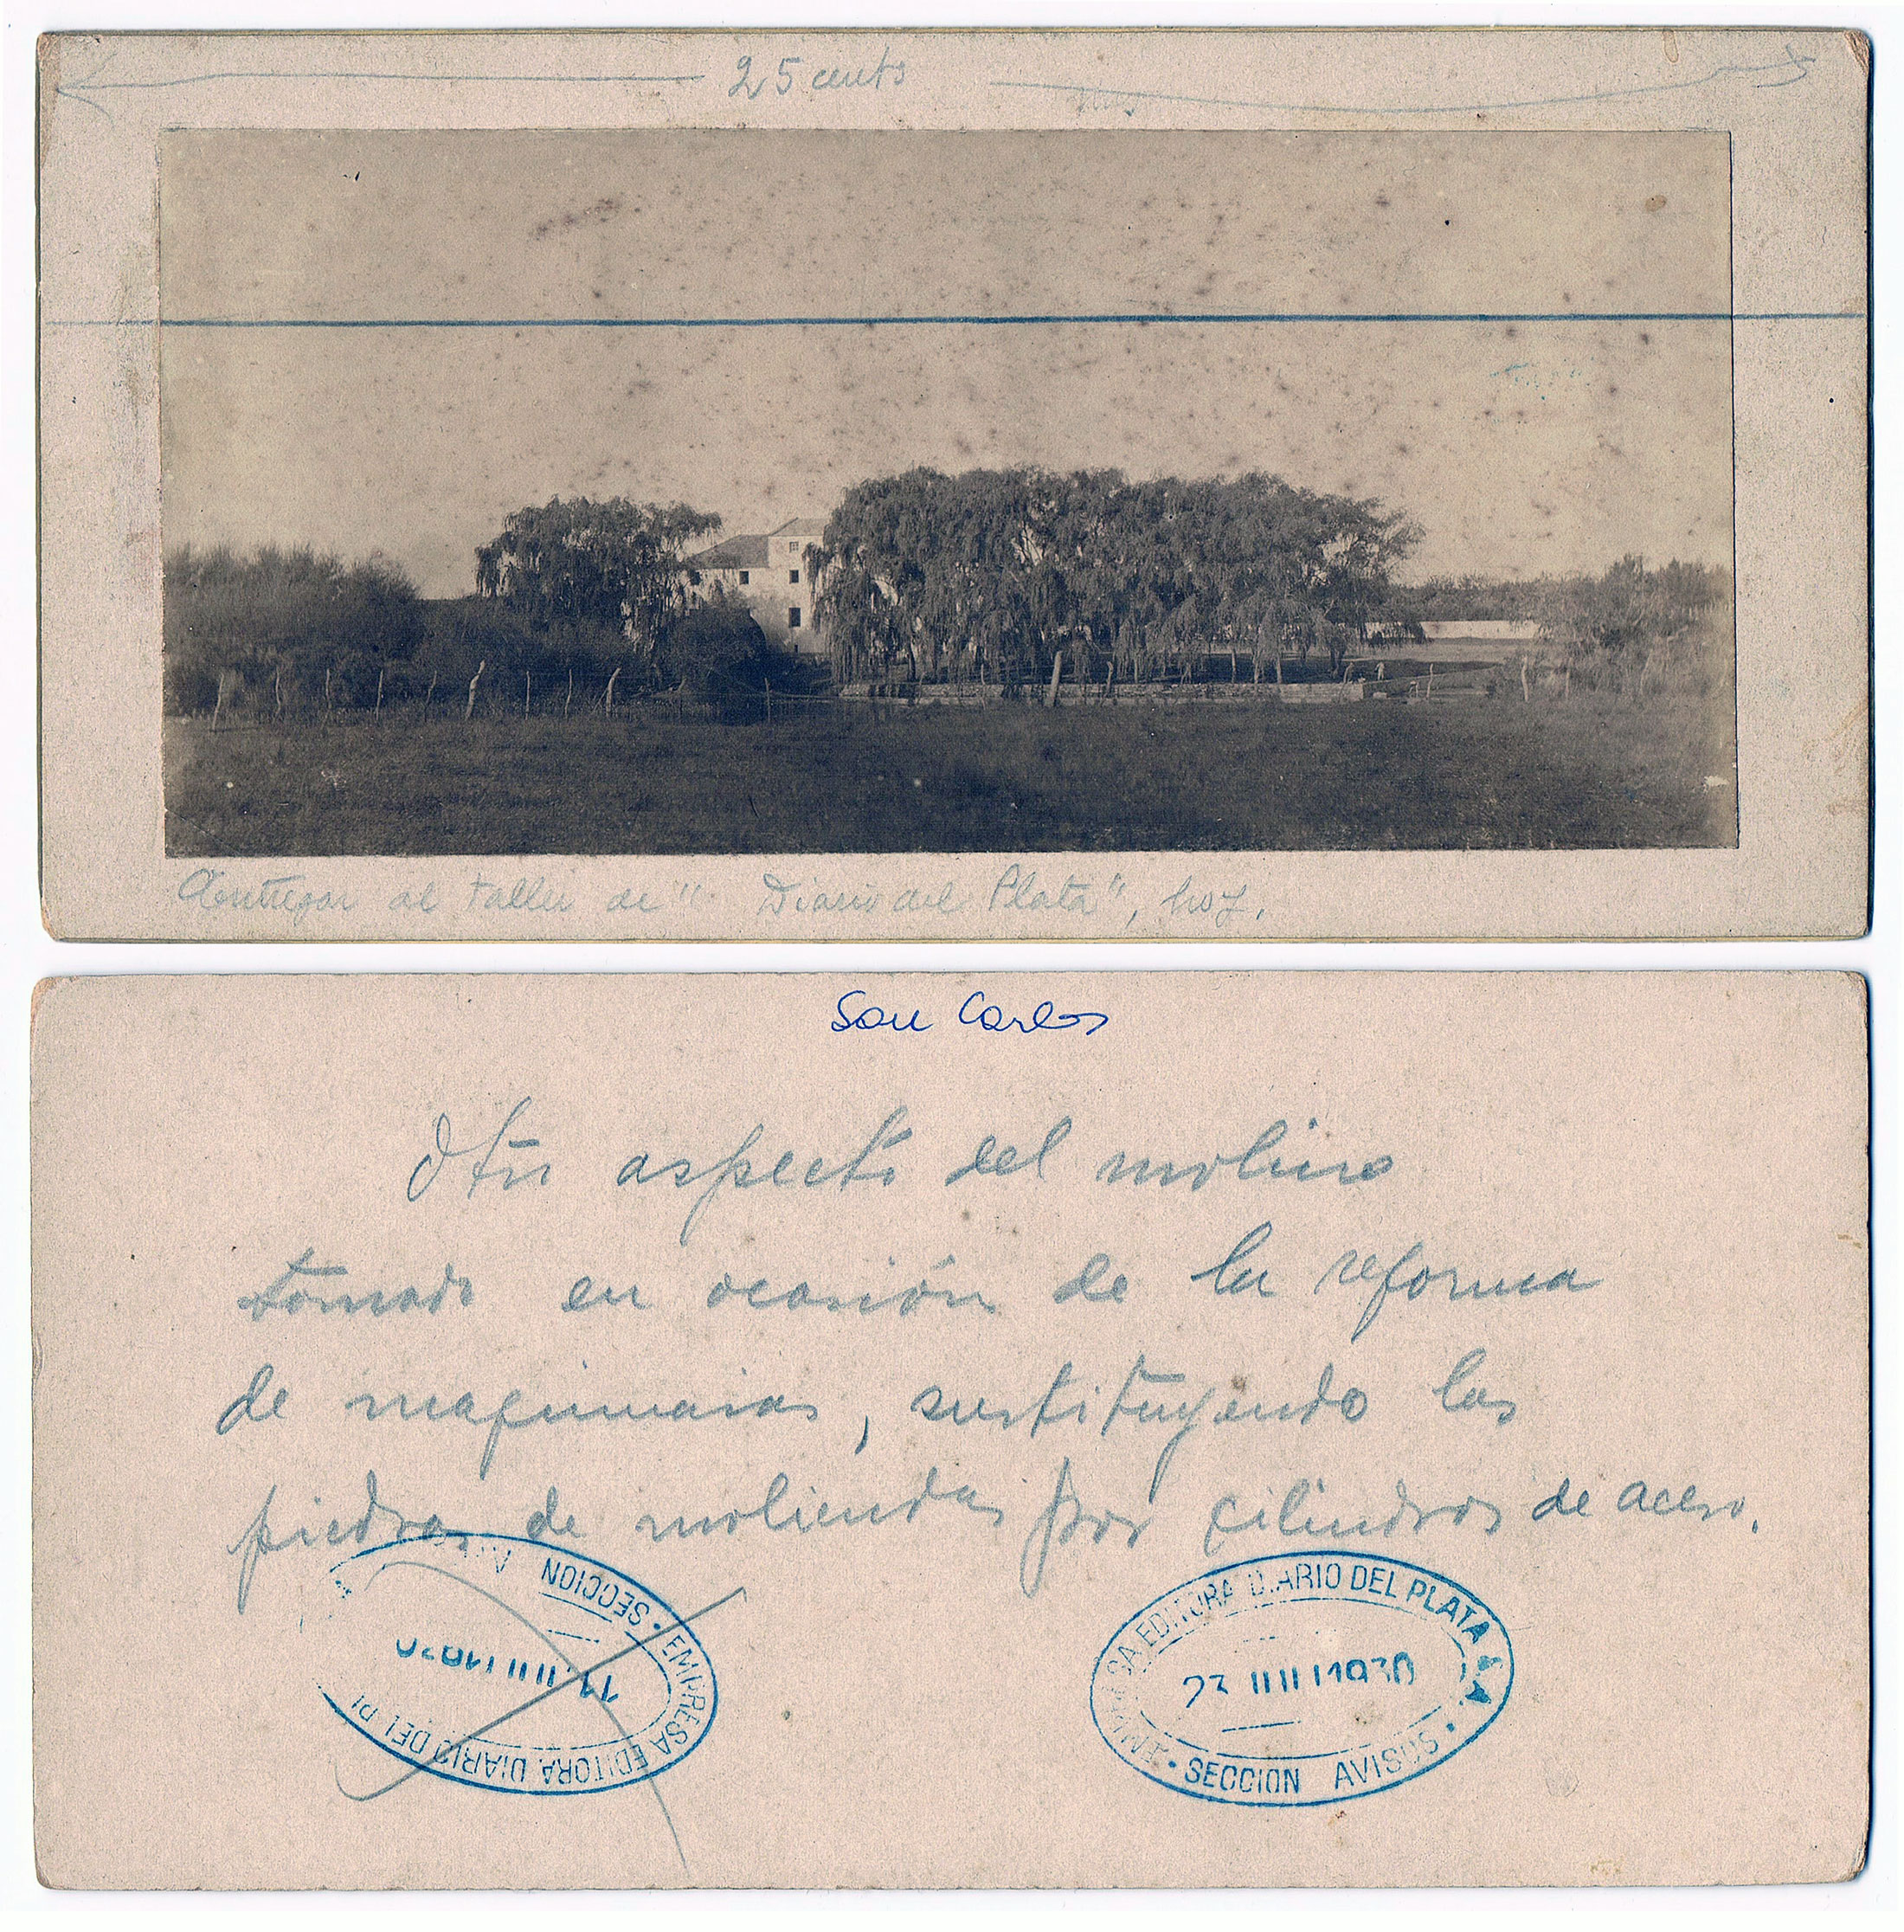 25 cents
Entregar al taller de "Diario del Plata", hoy.
San Carlos
Otro aspecto del molino
tomado en ocasión de la reforma
de maquinarias, sustituyendo las
piedras de moliendas por cilindros de acero.
SECCION
EMPRESA EDITORA DIARIO DEL PL
EMPRESA EDITORA DIARIO DEL PLATA S.A.
23 JUN 1930
SECCION AVISOS